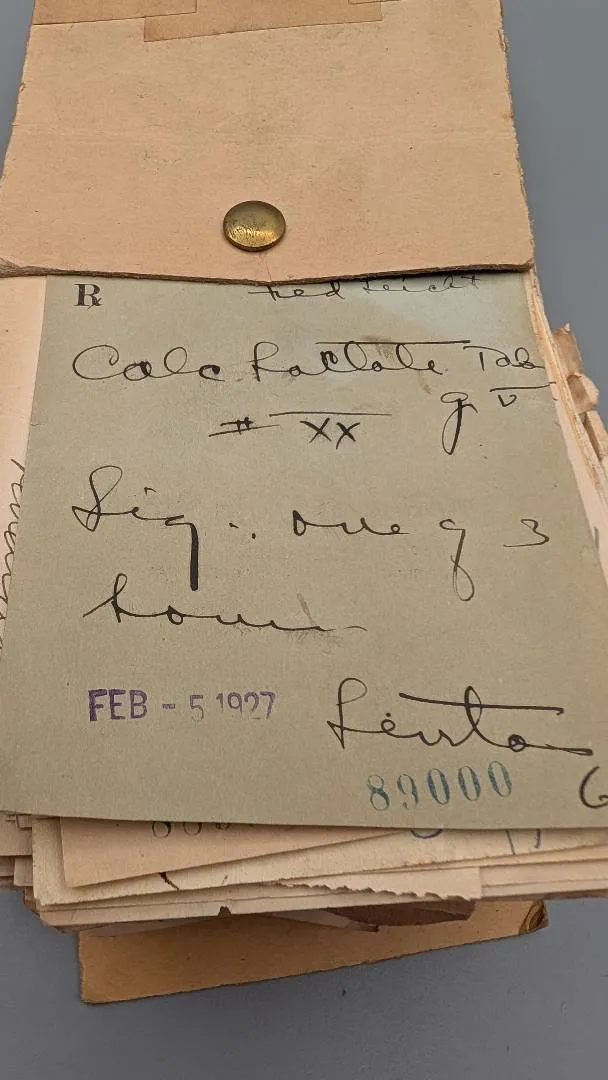 ℞
Calc Lactate Tab
# XX g v
Sig.. one q 3
hours
FEB - 5 1927
89000